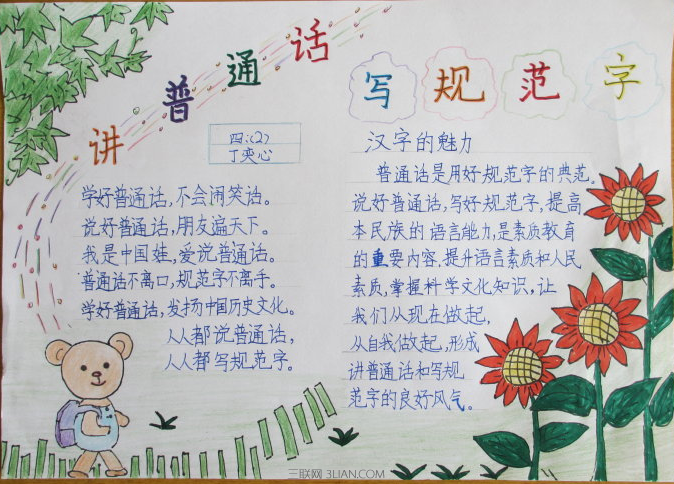 讲普通话
写规范字
四:(2)
丁奕心
学好普通话,不会闹笑话。
说好普通话,朋友遍天下。
我是中国娃,爱说普通话。
普通话不离口,规范字不离手。
学好普通话,发扬中国历史文化。
人人都说普通话,
人人都写规范字。
汉字的魅力
普通话是用好规范字的典范。
说好普通话,写好规范字,提高
本民族的语言能力,是素质教育
的重要内容,提升语言素质和人民
素质,掌握科学文化知识,让
我们从现在做起,
从自我做起,形成
讲普通话和写规
范字的良好风气。
三联网 3LIAN.COM